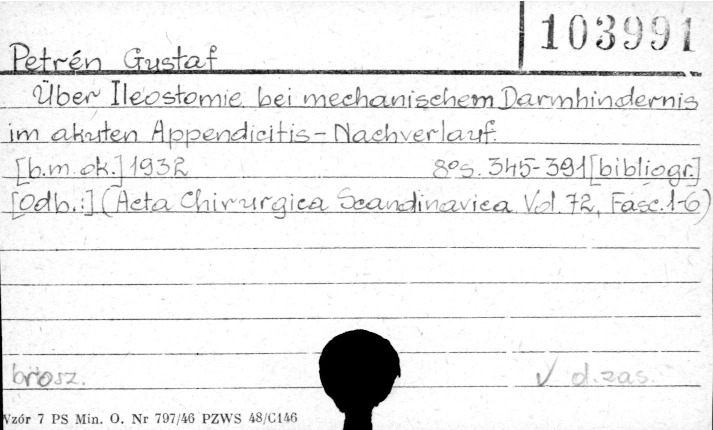 103991
Petrén Gustaf
Über Ileostomie bei mechanischem Darmhindernis
im akuten Appendicitis-Nachverlauf.
[b.m.ok.] 1932 8°s. 345-391 [bibliogr.]
[Odb.:] (Acta Chirurgica Scandinavica. Vol. 72, Fasc. 1-6)
brosz. V d.zas.
Wzór 7 PS Min. O. Nr 797/46 PZWS 48/C146